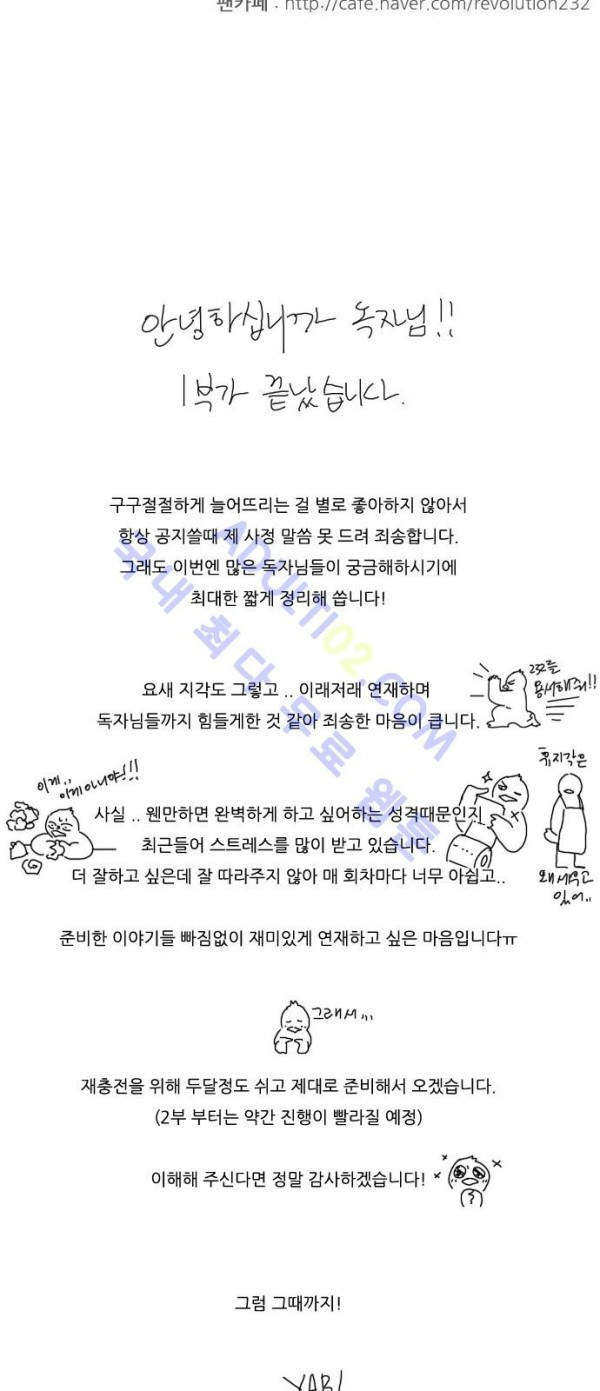 팬카페 : http://cafe.naver.com/revolution232
안녕하십니까 독자님!!
1부가 끝났습니다.
구구절절하게 늘어뜨리는 걸 별로 좋아하지 않아서
항상 공지쓸때 제 사정 말씀 못 드려 죄송합니다.
그래도 이번엔 많은 독자님들이 궁금해하시기에
최대한 짧게 정리해 씁니다!
ADULTI02.COM
국내 최다 무료 웹툰
요새 지각도 그렇고 .. 이래저래 연재하며
독자님들까지 힘들게한 것 같아 죄송한 마음이 큽니다.
232를
용서해줘!!
이게..
이게아니야!!!
사실 .. 웬만하면 완벽하게 하고 싶어하는 성격때문인지
최근들어 스트레스를 많이 받고 있습니다.
더 잘하고 싶은데 잘 따라주지 않아 매 회차마다 너무 아쉽고..
휴지각은
왜세우고
있어..
준비한 이야기들 빠짐없이 재미있게 연재하고 싶은 마음입니다ㅠ
그래서,,,
재충전을 위해 두달정도 쉬고 제대로 준비해서 오겠습니다.
(2부 부터는 약간 진행이 빨라질 예정)
이해해 주신다면 정말 감사하겠습니다!
그럼 그때까지!